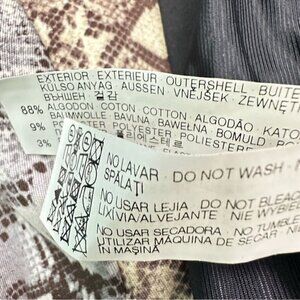 EXTERIOR · EXTERIEUR · OUTERSHELL · BUITE
KÜLSO ANYAG · AUSSEN · VNEJŠEK · ZEWNĘT
ВЪНШЕН 겉감
88% ALGODON COTTON COTTON · ALGODÃO · KATO
BAUMWOLLE · BAVLNA · BAWEŁNA · BOMULD
9% POLYESTER POLIESTER
3%
NO LAVAR · DO NOT WASH
SPĂLAȚI
NO USAR LEJIA · DO NOT BLEAC
LIXIVIA/ALVEJANTE · NIE WYBIE
NO USAR SECADORA · NO TUMBLE
UTILIZAR MÁQUINA DE SECAR
ÎN MAȘINĂ